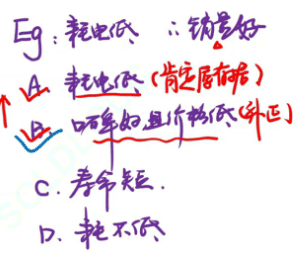 Eg：耗电低 ∴销量好
A 耗电低（肯定原有论据）
B 噪音好且价格低（补正）
C. 寿命短.
D. 耗不低